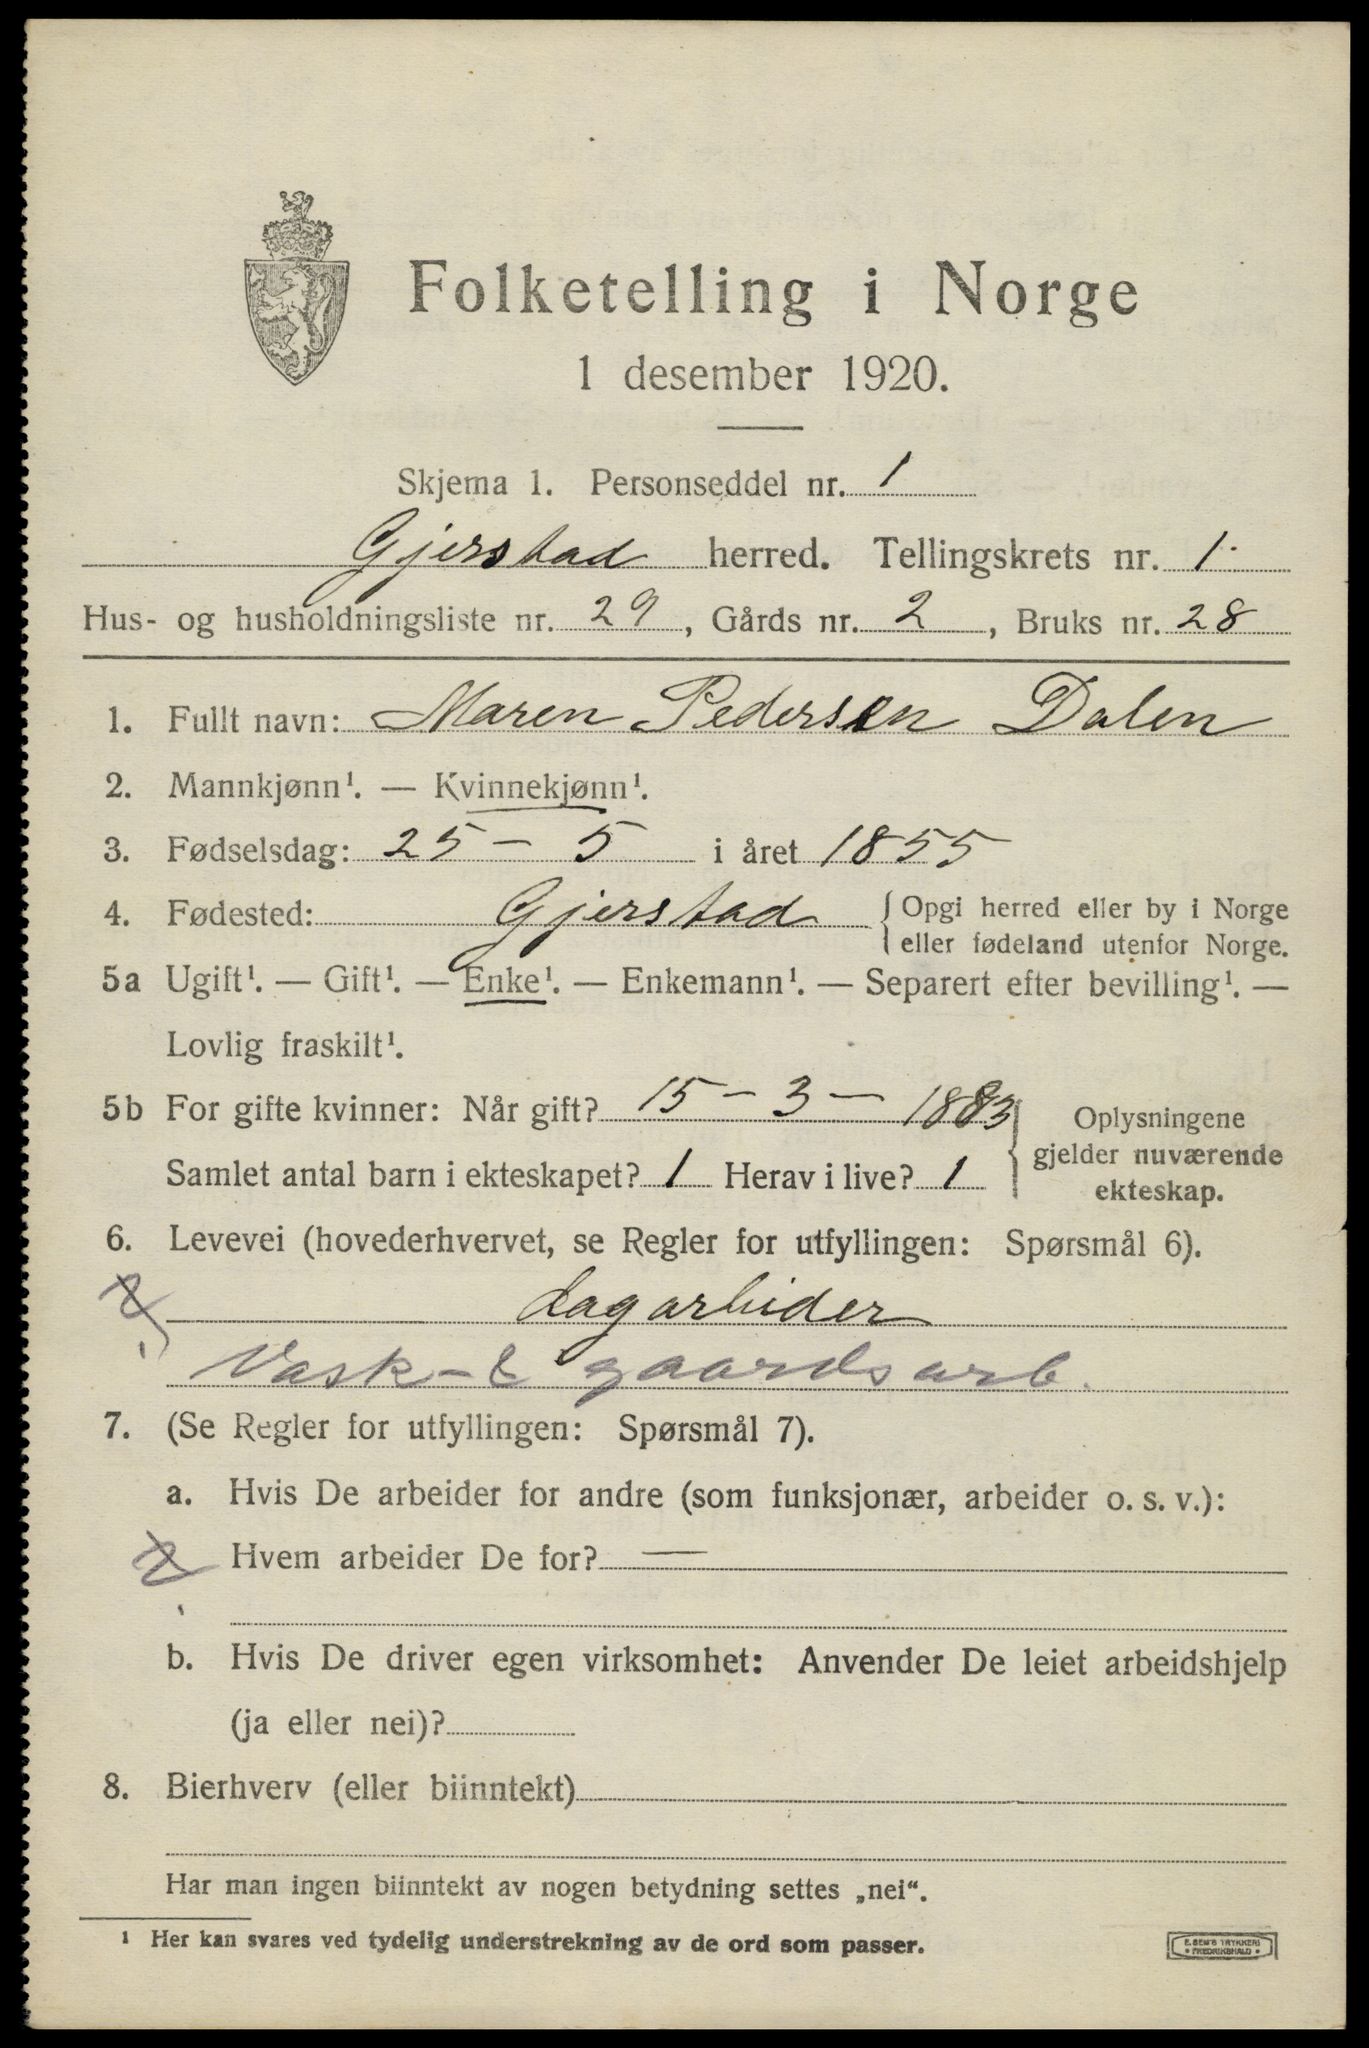 Folketelling i Norge
1 desember 1920.
Skjema 1. Personseddel nr. 1
Gjerstad herred. Tellingskrets nr. 1
Hus- og husholdningsliste nr. 29, Gårds nr. 2, Bruks nr. 28
1. Fullt navn: Maren Pedersen Dalen
2. Mannkjønn¹. — Kvinnekjønn¹.
3. Fødselsdag: 25 - 5 i året 1855
4. Fødested: Gjerstad { Opgi herred eller by i Norge
eller fødeland utenfor Norge.
5a Ugift¹. — Gift¹. — Enke¹. — Enkemann¹. — Separert efter bevilling¹. —
Lovlig fraskilt¹.
5b For gifte kvinner: Når gift? 15 - 3 - 1883
Samlet antal barn i ekteskapet? 1 Herav i live? 1
{ Oplysningene
gjelder nuværende
ekteskap.
6. Levevei (hovederhvervet, se Regler for utfyllingen: Spørsmål 6).
dagarbeider
Vask- & gaardsarb.
7. (Se Regler for utfyllingen: Spørsmål 7).
a. Hvis De arbeider for andre (som funksjonær, arbeider o. s. v.):
Hvem arbeider De for? —
b. Hvis De driver egen virksomhet: Anvender De leiet arbeidshjelp
(ja eller nei)?
8. Bierhverv (eller biinntekt)
Har man ingen biinntekt av nogen betydning settes „nei“.
¹ Her kan svares ved tydelig understrekning av de ord som passer.
E. SEM'S TRYKKERI
• FREDRIKSHALD •